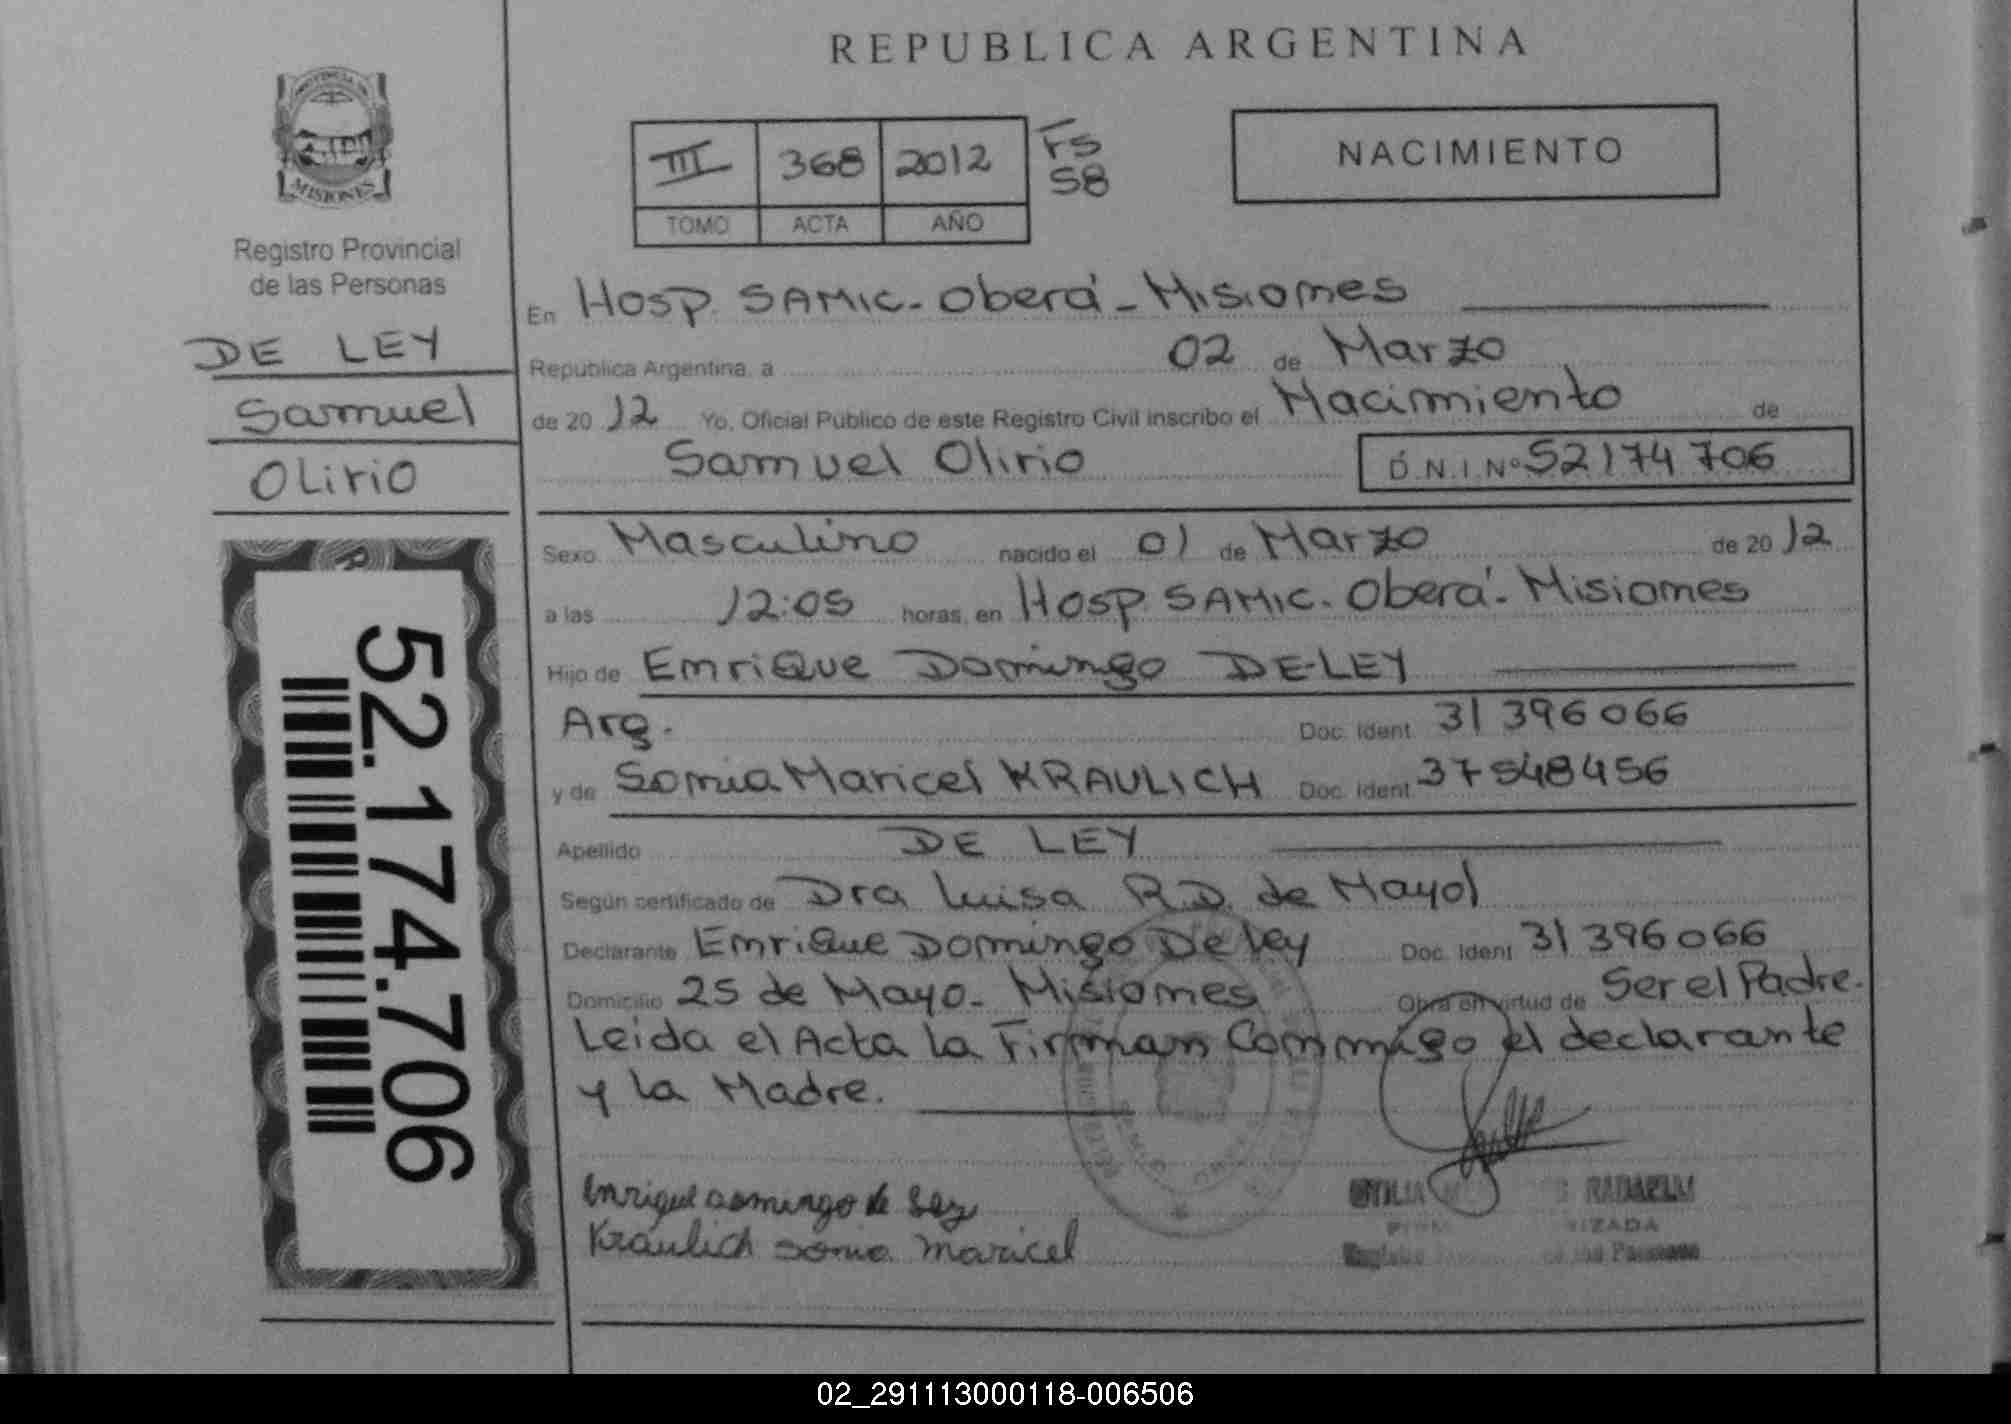 REPUBLICA ARGENTINA
PROVINCIA DE
MISIONES
Registro Provincial
de las Personas
DE LEY
Samuel
OLirio
52.174.706
III 368 2012 Fs
58
TOMO ACTA AÑO
NACIMIENTO
En Hosp. SAMIC - Oberá - Misiones
Republica Argentina, a 02 de Marzo
de 2012 Yo, Oficial Publico de este Registro Civil inscribo el Nacimiento de
Samuel Olirio D.N.I.Nº 52174706
Sexo Masculino nacido el 01 de Marzo de 2012
a las 12:05 horas, en Hosp. SAMIC. Oberá - Misiones
Hijo de Enrique Domingo DE LEY
Arg. Doc. Ident 31396066
y de Sonia Maricel KRAULICH Doc. Ident 37548456
Apellido DE LEY
Según certificado de Dra Luisa R.D. de Mayol
Declarante Enrique Domingo De Ley Doc. Ident 31396066
Domicilio 25 de Mayo - Misiones Obra en virtud de Ser el Padre.
Leida el Acta la Firman Conmigo el declarante
y la Madre.
Enrique domingo de Ley
Kraulich sonia maricel
RADAELLI
02_291113000118-006506